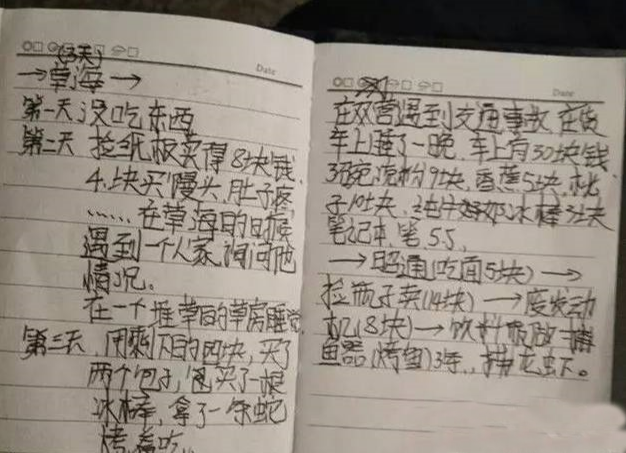 (3天)
Date
→草海→
第一天 没吃东西
第二天 捡纸板卖得8块钱,
4块买馒头,肚子疼,
……在草海的时候
遇到一个人家,询问他
情况。
在一个堆草的草房睡觉
第三天,用剩下的四块,买了
两个包子,包买了一根
冰棒,拿了一条蛇
烤着吃。
Date
在双营遇到交通事故,在货
车上睡了一晚,车上有30块钱,
3碗凉粉9块,香蕉5块,桃
子10块,冰棒3块
笔记本,笔5.5,
→昭通(吃面5块)→
捡瓶子卖(14块)→废发动
机(8块)→饮料瓶做捕
鱼器(烤鱼)3条,捕龙虾。